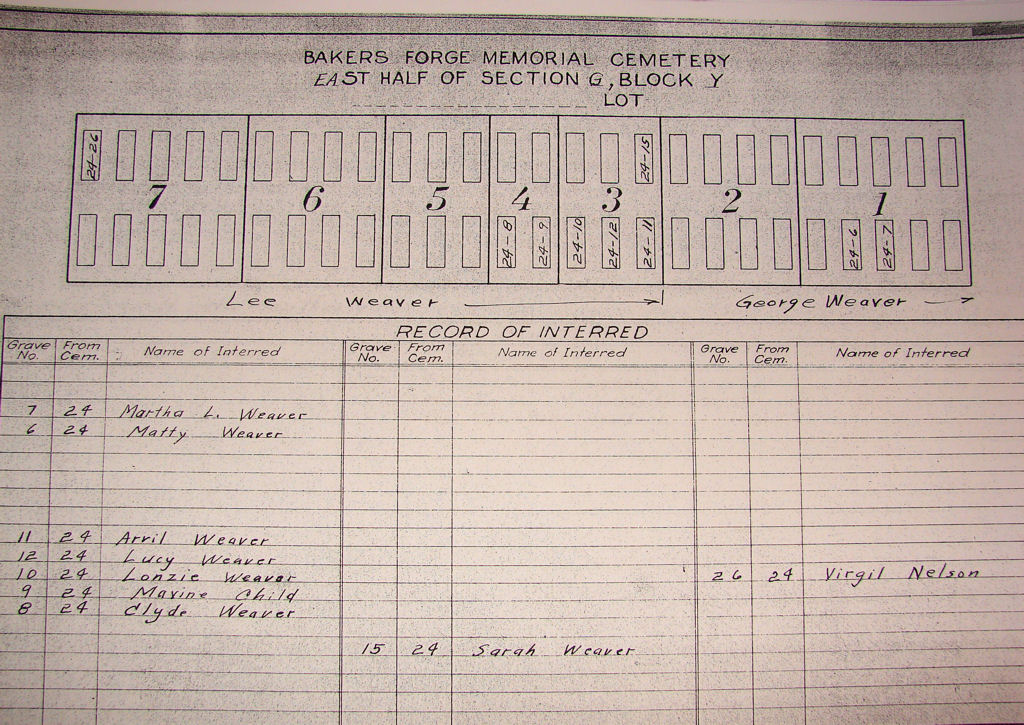 BAKERS FORGE MEMORIAL CEMETERY
EAST HALF OF SECTION G, BLOCK Y
LOT
24-26 24-15
7 6 5 4 3 2 1
24-8 24-9 24-10 24-12 24-11 24-6 24-7
Lee Weaver George Weaver
RECORD OF INTERRED
Grave No. From Cem. Name of Interred Grave No. From Cem. Name of Interred Grave No. From Cem. Name of Interred
7 24 Martha L. Weaver
6 24 Matty Weaver
11 24 Arvil Weaver
12 24 Lucy Weaver
10 24 Lonzie Weaver 26 24 Virgil Nelson
9 24 Maxine Child
8 24 Clyde Weaver
15 24 Sarah Weaver